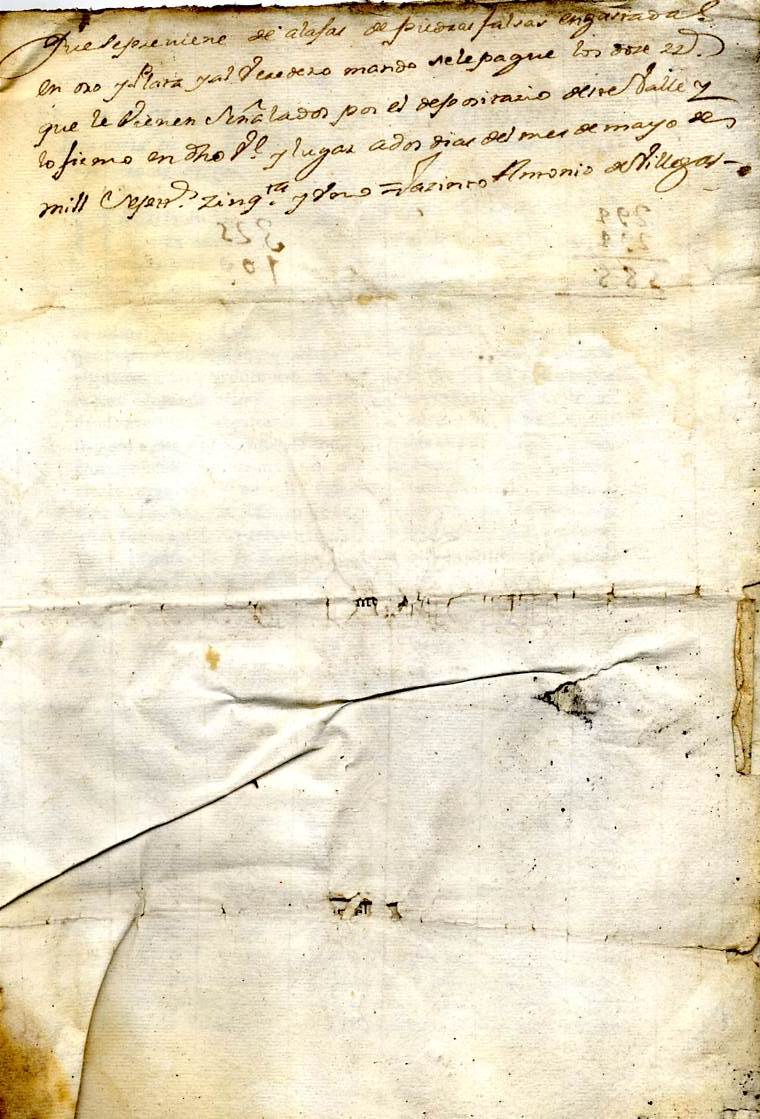 Que se previene de alajas de piedras falsas engastadas
en oro y Plata y al Veredero mando se le pague los doze rr.s
que le vienen Señalados por el depositario deste Valle y
lo firmo en dho V.e y lugar a dos dias del mes de mayo de
mill Setezz.s zinq.ta y Uno = Jazinto Antonio de Villegas
325
100
294
294
588